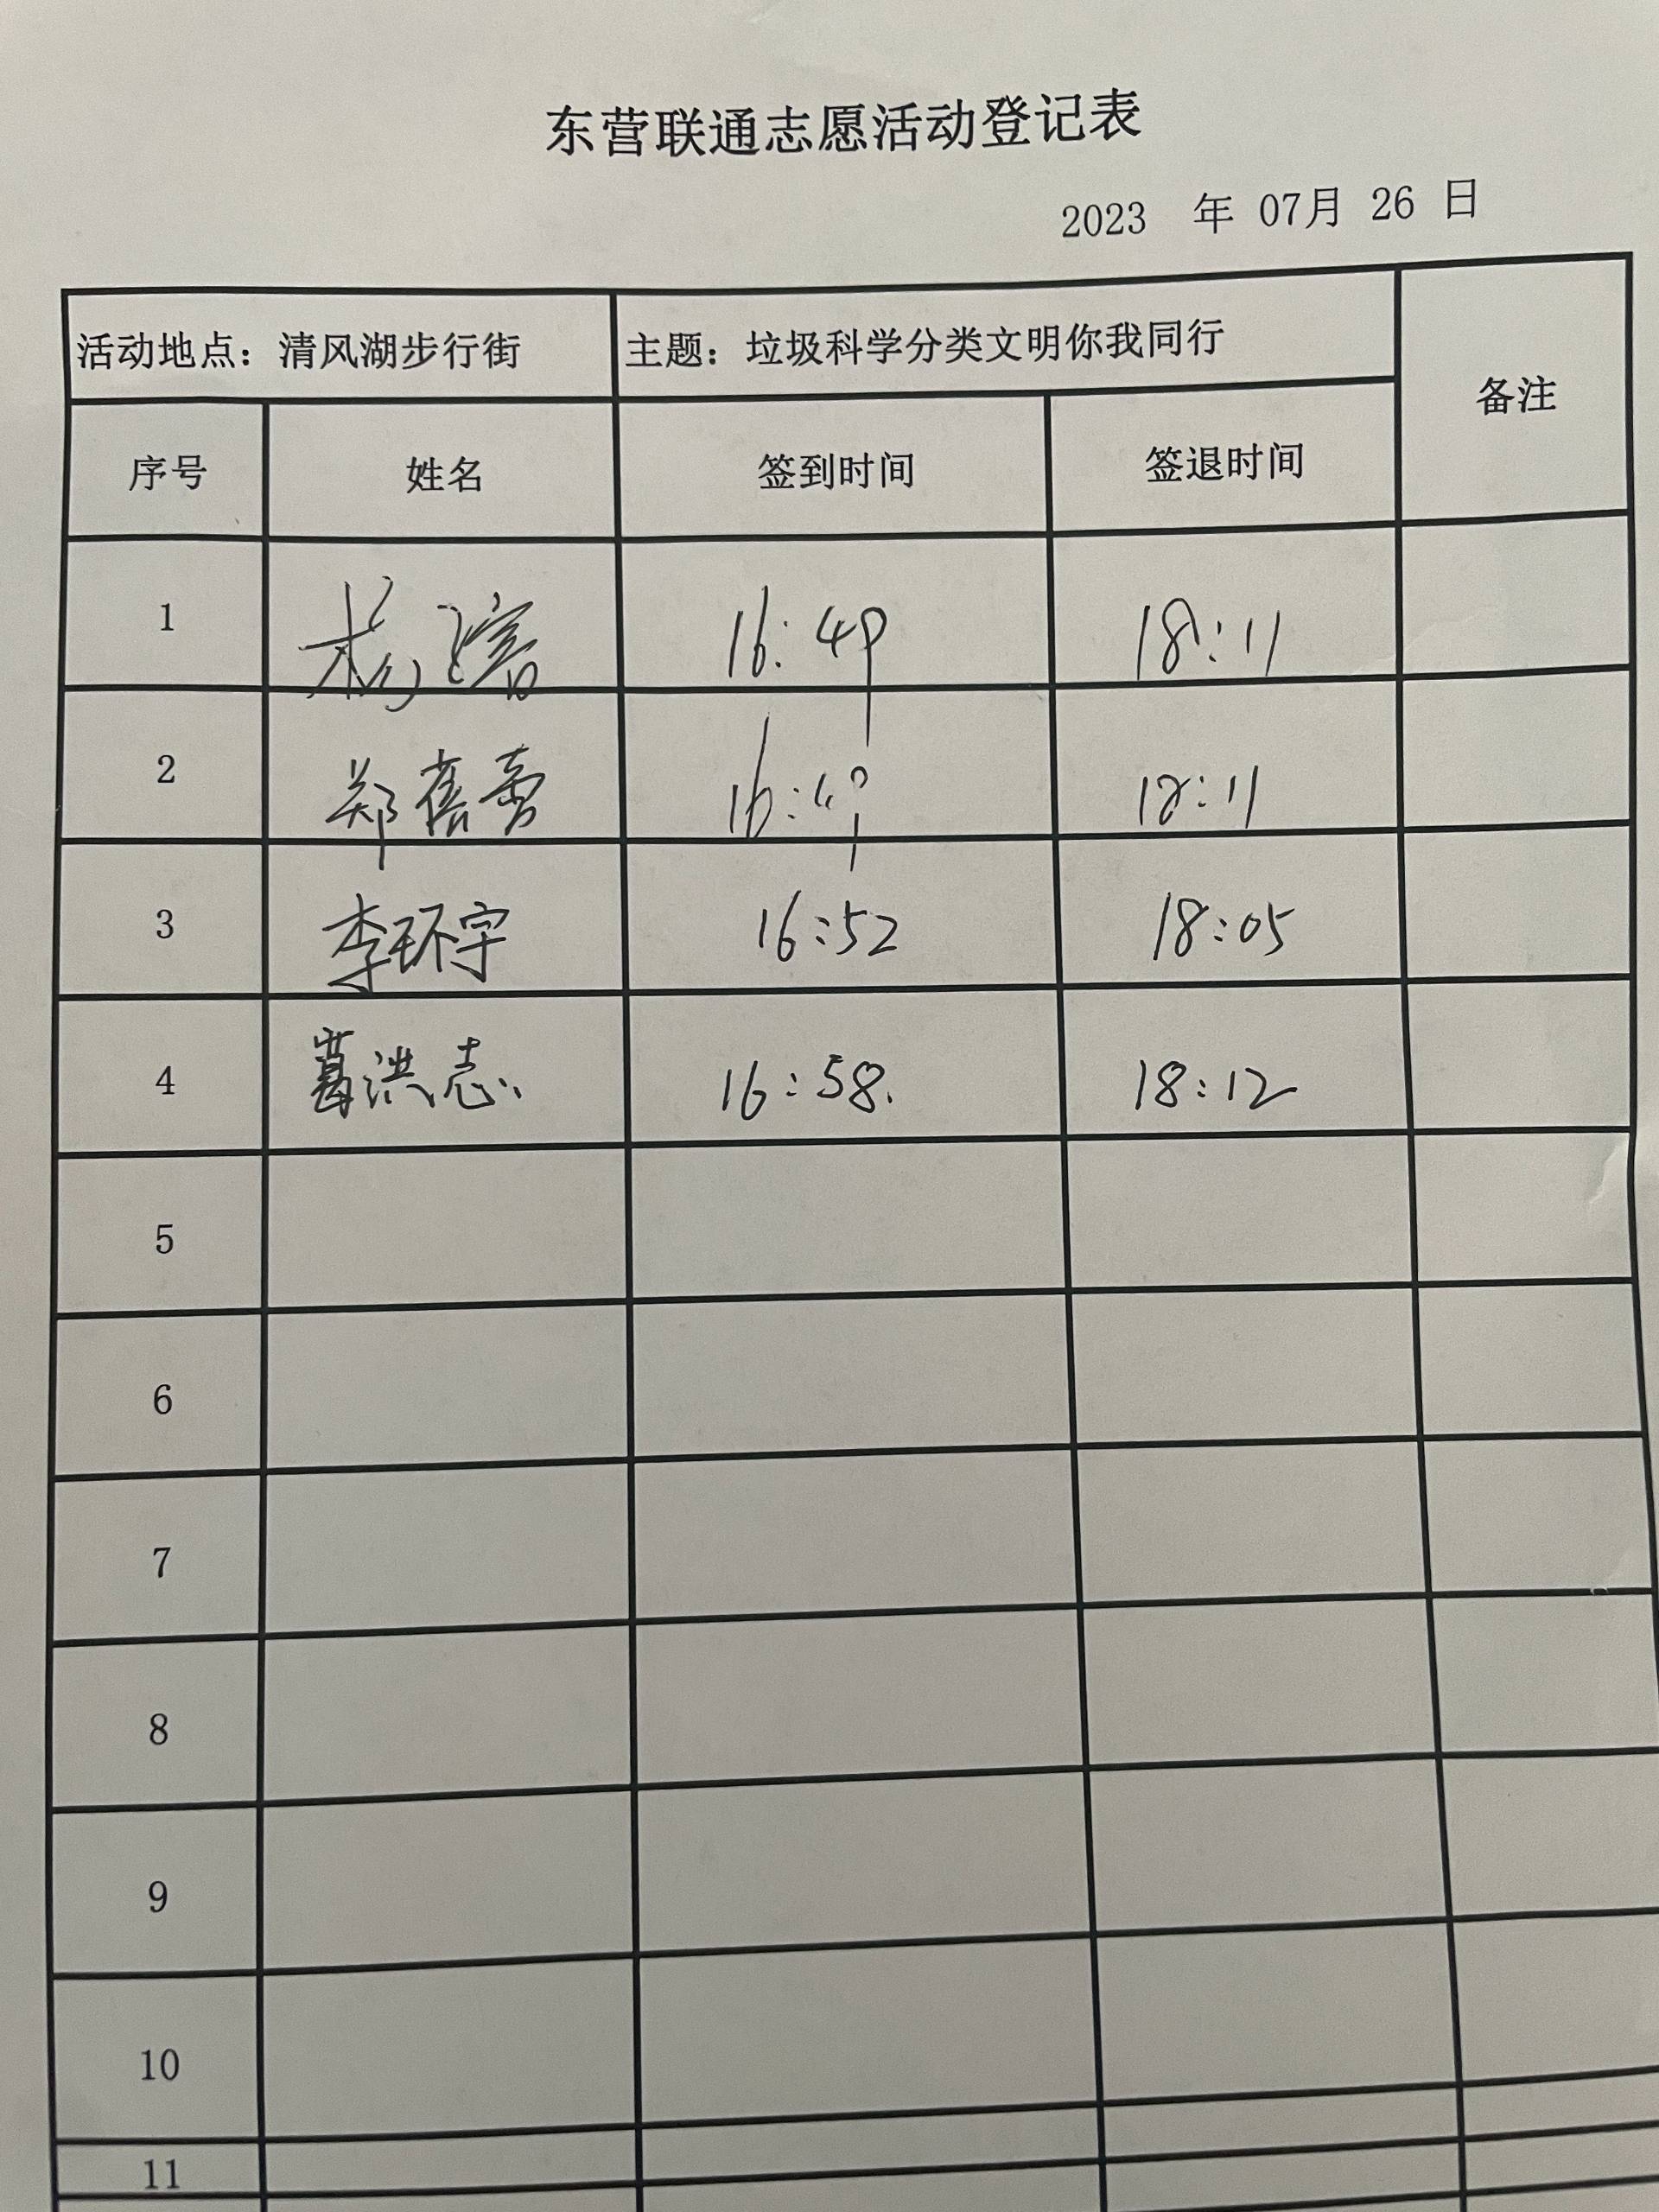 东营联通志愿活动登记表
2023 年 07月 26 日
活动地点：清风湖步行街 主题：垃圾科学分类文明你我同行 备注
序号 姓名 签到时间 签退时间
1 杨 16:49 18:11
2 郑 16:49 18:11
3 李环宇 16:52 18:05
4 葛洪志 16:58. 18:12
5
6
7
8
9
10
11